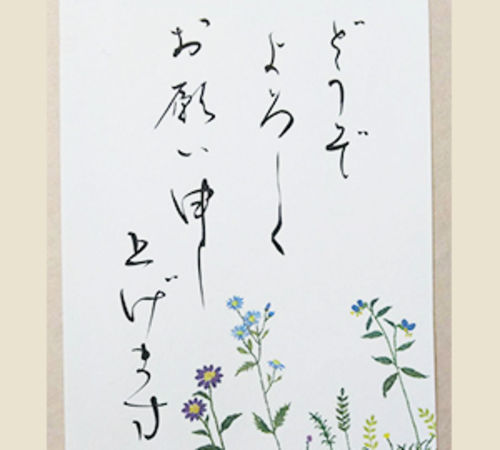 どうぞ
よろしく
お願い申し
上げます